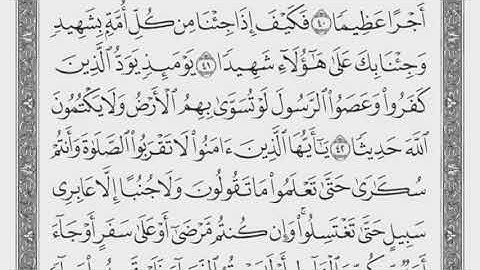 أَجْرًا عَظِيمًا ٤٠ فَكَيْفَ إِذَا جِئْنَا مِن كُلِّ أُمَّةٍۭ بِشَهِيدٍ
وَجِئْنَا بِكَ عَلَىٰ هَـٰٓؤُلَآءِ شَهِيدًا ٤١ يَوْمَئِذٍ يَوَدُّ ٱلَّذِينَ
كَفَرُوا۟ وَعَصَوُا۟ ٱلرَّسُولَ لَوْ تُسَوَّىٰ بِهِمُ ٱلْأَرْضُ وَلَا يَكْتُمُونَ
ٱللَّهَ حَدِيثًا ٤٢ يَـٰٓأَيُّهَا ٱلَّذِينَ ءَامَنُوا۟ لَا تَقْرَبُوا۟ ٱلصَّلَوٰةَ وَأَنتُمْ
سُكَـٰرَىٰ حَتَّىٰ تَعْلَمُوا۟ مَا تَقُولُونَ وَلَا جُنُبًا إِلَّا عَابِرِى
سَبِيلٍ حَتَّىٰ تَغْتَسِلُوا۟ ۚ وَإِن كُنتُم مَّرْضَىٰٓ أَوْ عَلَىٰ سَفَرٍ أَوْ جَآءَ